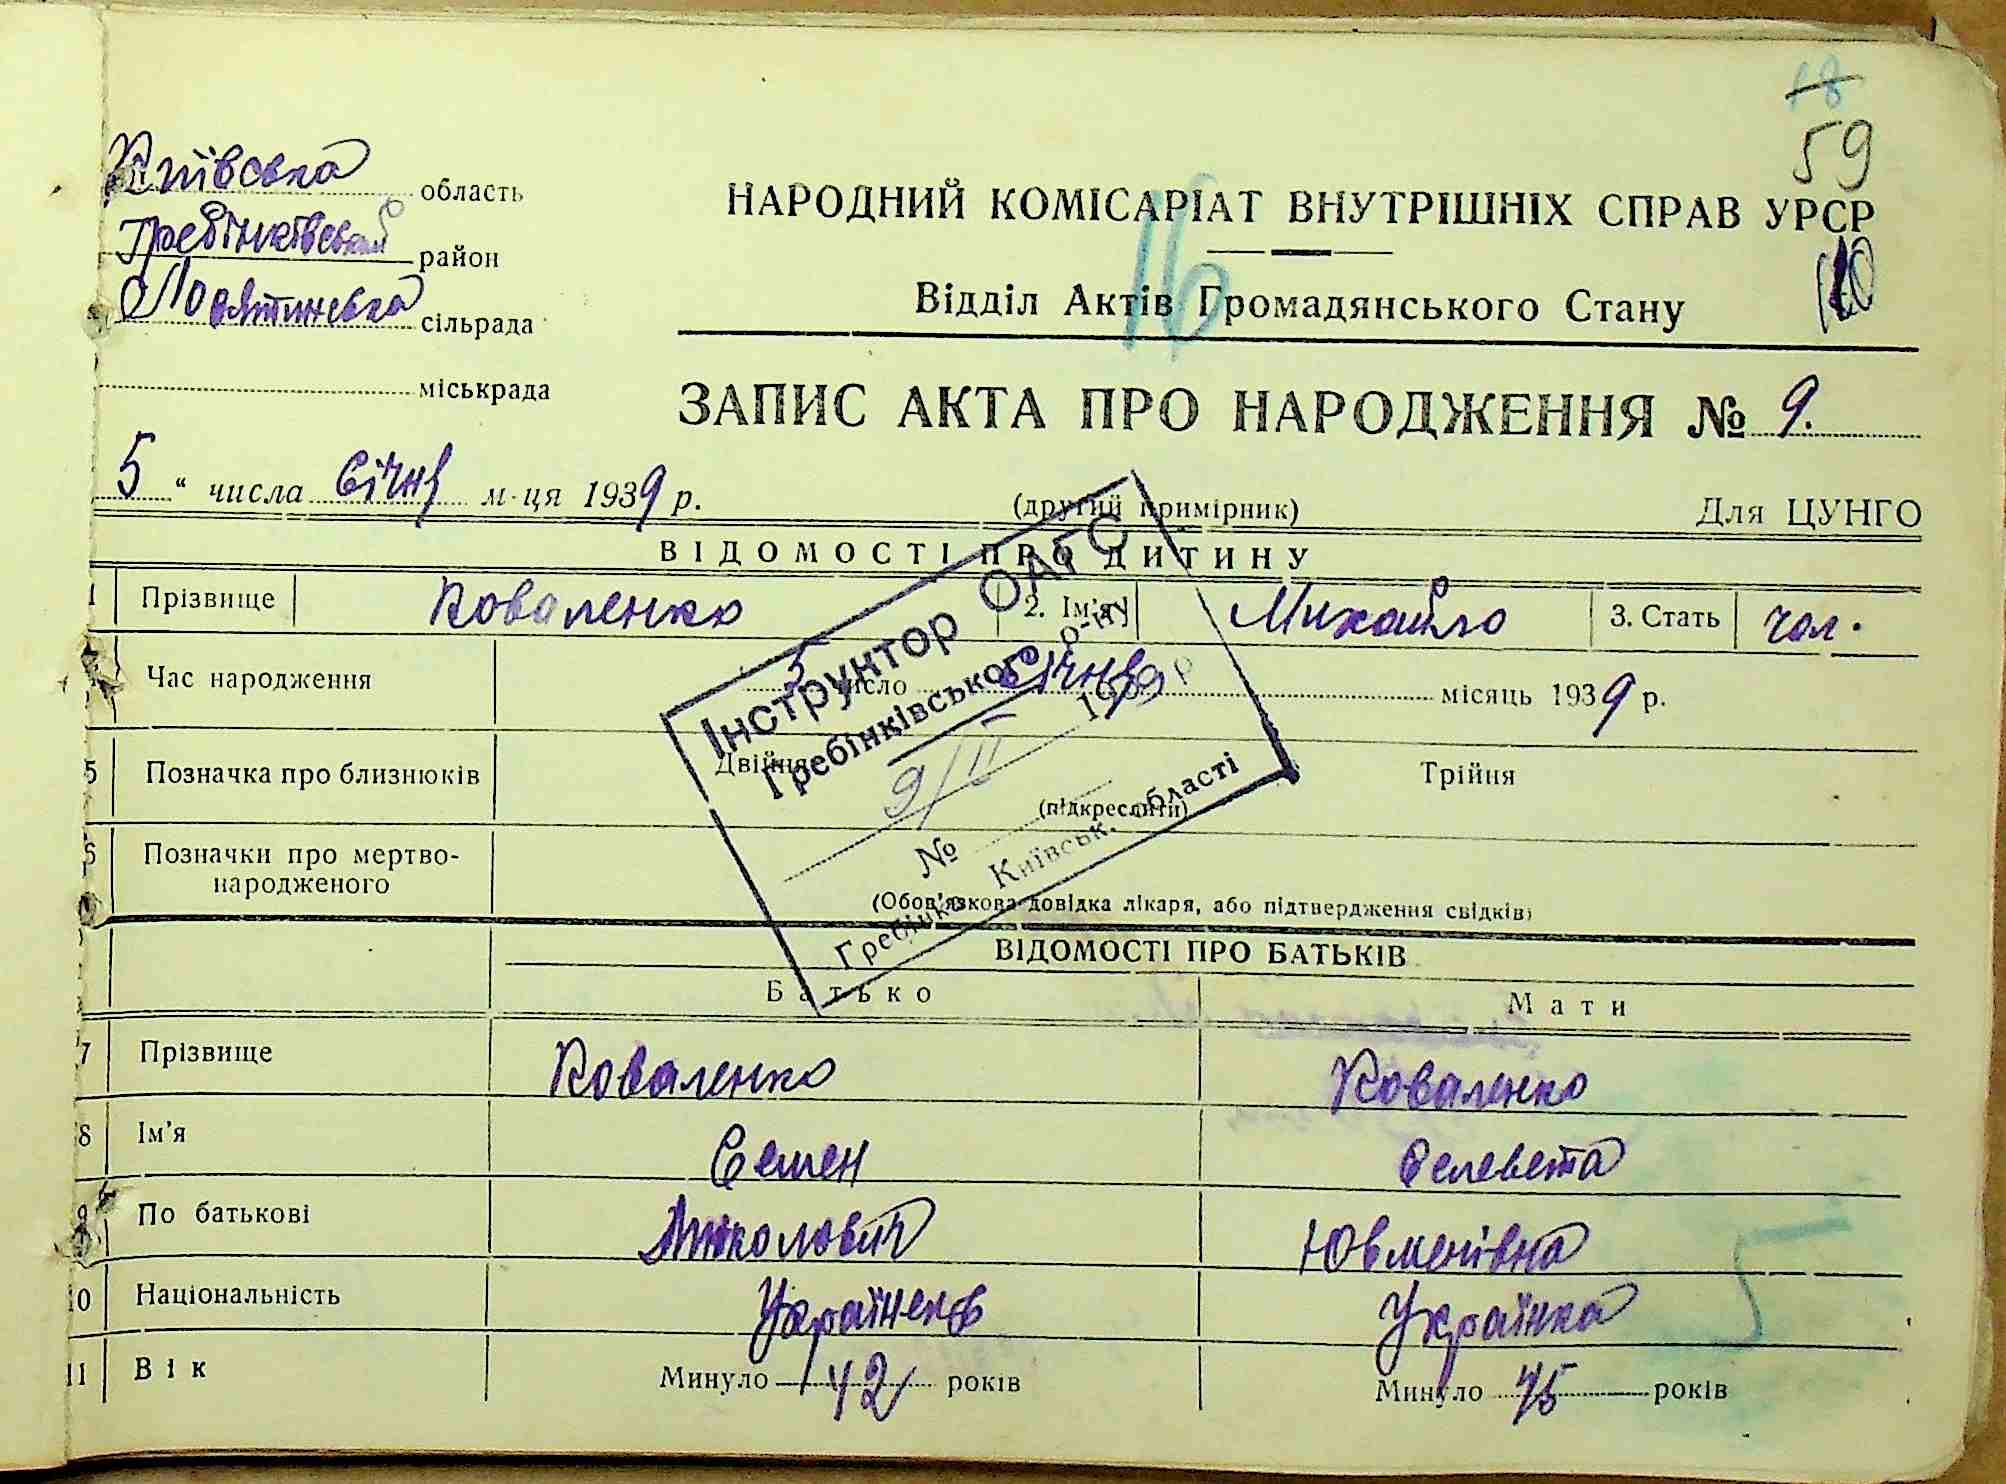 18
59
Київська область
Гребінківський район
Лосятинська сільрада
міськрада
НАРОДНИЙ КОМІСАРІАТ ВНУТРІШНІХ СПРАВ УРСР
16
Відділ Актів Громадянського Стану
ЗАПИС АКТА ПРО НАРОДЖЕННЯ № 9.
5 " числа Січня м-ця 1939 р.
(другий примірник)
Для ЦУНГО
ВІДОМОСТІ ПРО ДИТИНУ
1 Прізвище Коваленко 2. Ім'я Михайло 3. Стать чол.
Час народження 5 число Січня місяць 1939 р.
5 Позначка про близнюків Двійня Трійня
(підкреслити)
6 Позначки про мертво-
народженого
(Обов'язкова довідка лікаря, або підтвердження свідків)
Інструнтор ОАГС
Гребінківського р-ну
9/II 1939 р
№
Гребінки Київськ. області
ВІДОМОСТІ ПРО БАТЬКІВ
Батько Мати
7 Прізвище Коваленко Коваленко
8 Ім'я Семен Селевета
9 По батькові Миколович Ювменівна
10 Національність Українець Українка
5
11 Вік Минуло 42 років Минуло 45 років